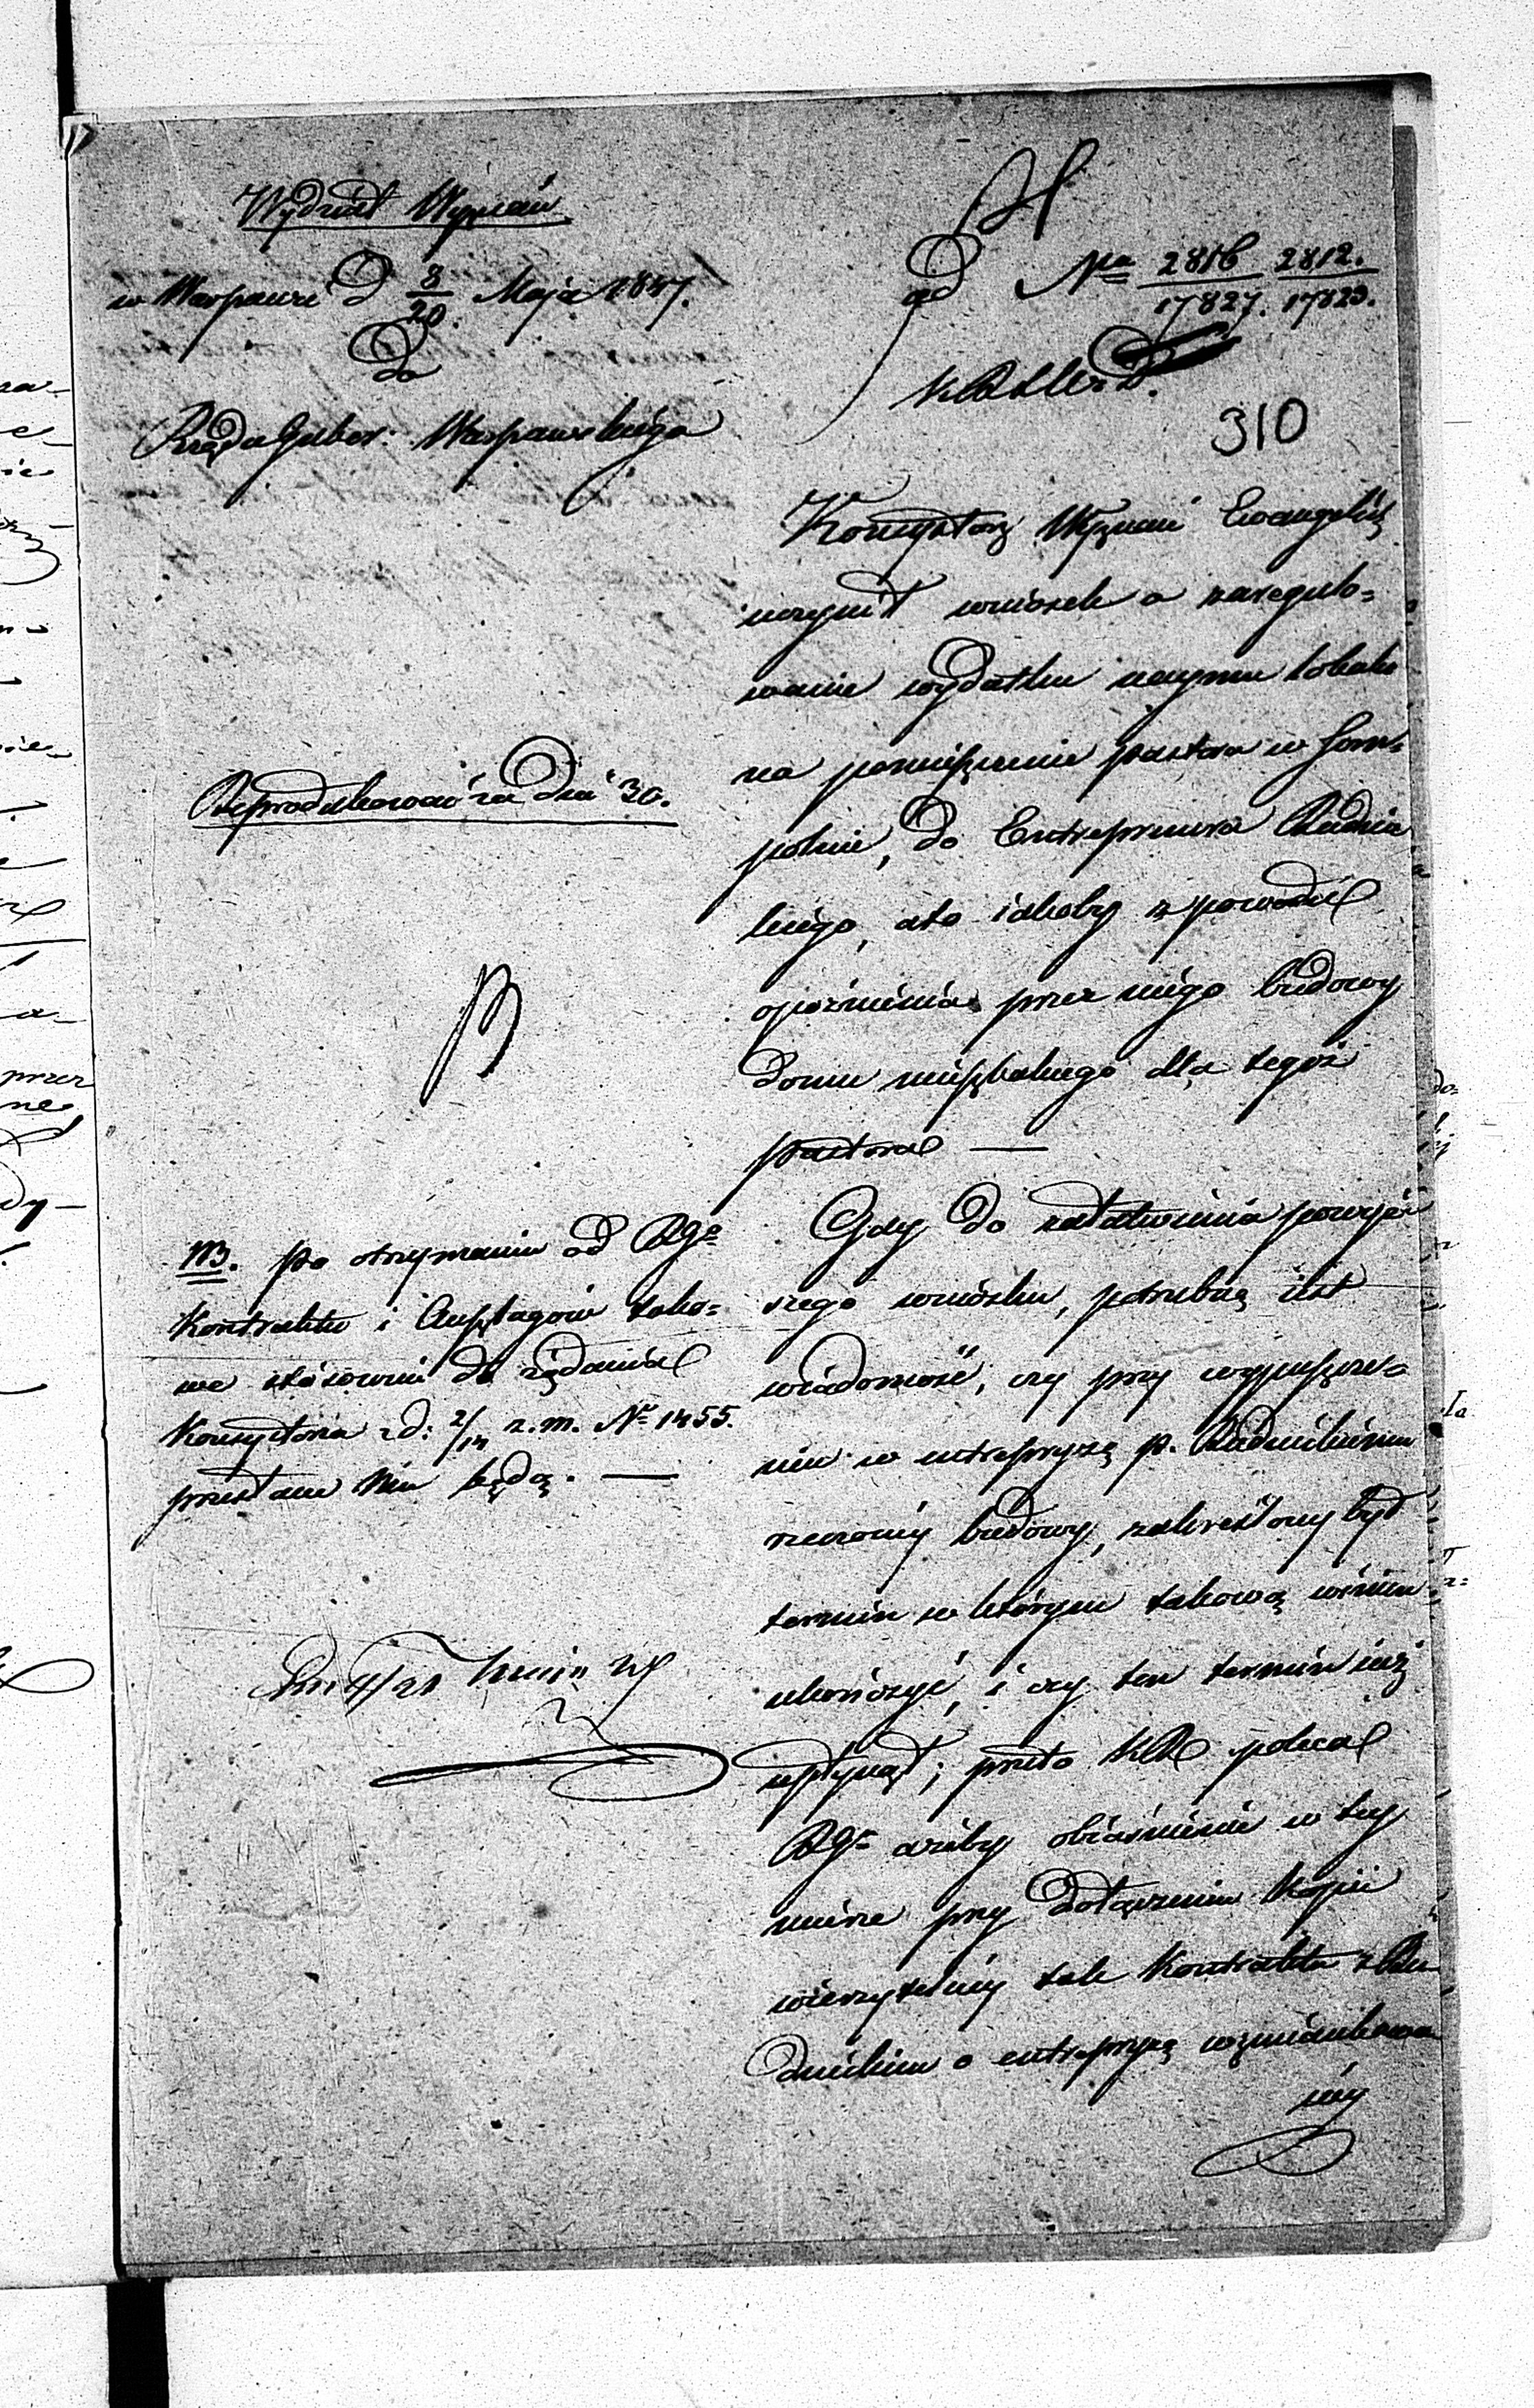 Wydział Wyznań
w Warszawie d 8/20 Maja 1847.
do
Rządu Guber: Warszawskiego
ad Nra 2816/17827. 2812./17823.
310
Konsystorz Wyznań Ewangelic
uczynił wniosek o zaregulo=
wanie wydatku najmu lokalu
na pomieszczenie pastora w Som=
polnie, do Entreprenera Radnic
kiego, a to jakoby z powodu
opóźnienia przez niego budowy
domu mieszkalnego dla tegoż
pastora —
Gdy do załatwienia powyż
szego wniosku, potrzebną jest
wiadomość, czy przy wypuszcze=
niu w entrepryzę p. Radnickiemu
rzeczonej budowy, zakreślony był
termin w którym takową winien
ukończyć, i czy ten termin już
upłynął; przeto KR poleca
RGu ażeby objaśnienie w tey
mierze przy dołączeniu Kopii
wierzytelney tak Kontraktu z Ra
dnickim o entrepryzę wzmiankowa
ney
Reprodukować za dni 30.
NB. Po otrzymaniu od RGo
Kontraktu i Anszlagów tako=
we stósownie do żądania
Konsystorza z d: 2/14 z. m. No 1455.
przesłane Mu będą. —